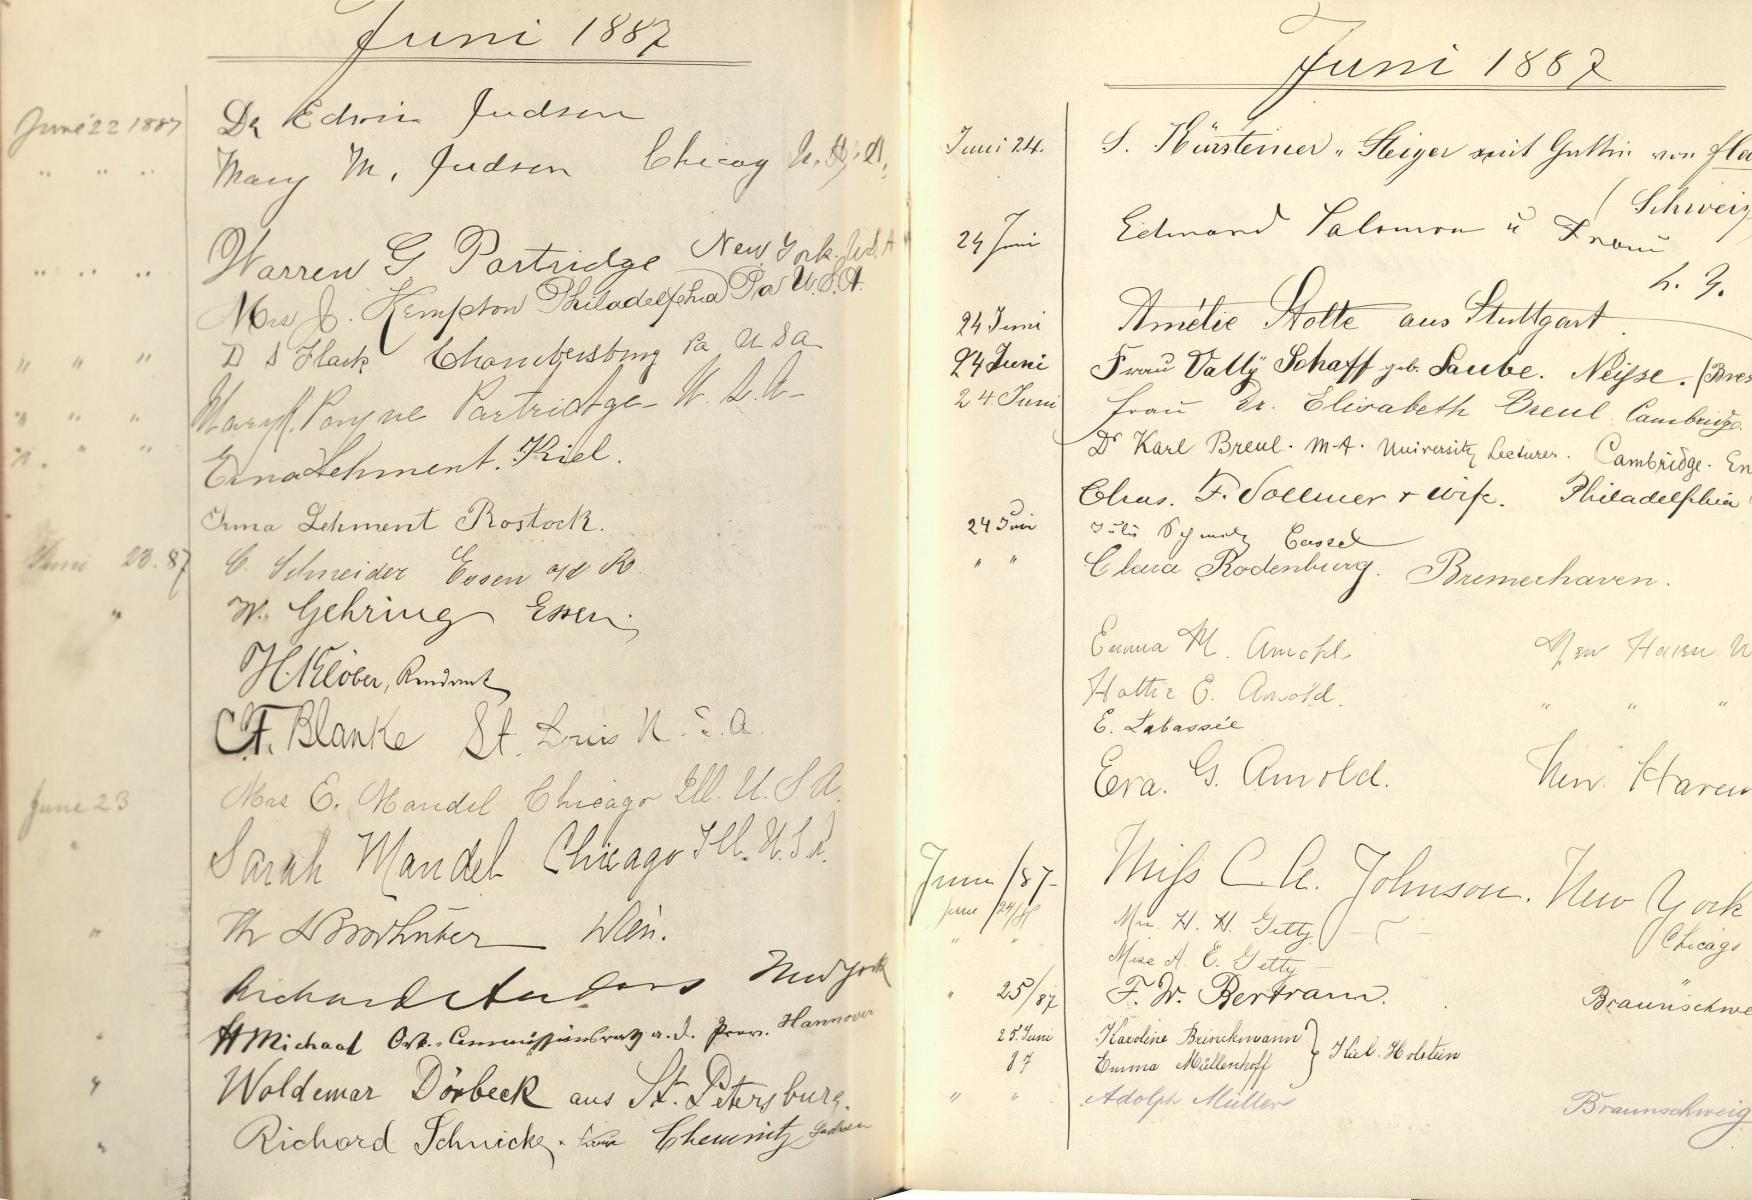 Juni 1887
June 22 1887 Dr Edwin Judson
" " " Mary M. Judson
" " " Warren G Partridge New York. U.S.A
Mrs J. Kempton Philadelphia Pa U.S.A.
" " " D S Flack Chambersburg Pa U S A
" " " Payne Partridge - U.S.A-
" " " Erna Lehment. Kiel.
Irma Lehment Rostock.
Juni 23. 87 C. Schneider Essen a/d R.
" W. Gehring Essen.
H. Klöber, Rendant
C.F. Blanke St. Louis U.S.A.
June 23 Mrs E. Mandel Chicago Ill. U.S.A.
" Sarah Mandel Chicago Ill. U.S.A.
" Wien.
Richard Anders New York
" H Michael a.d. Prov. Hannover
" Woldemar Dörbeck aus St. Petersburg.
" Richard Schnicke, Chemnitz Sachsen
Juni 1887
Juni 24. S. Kürsteiner - Steiger mit Gattin von
(Schweiz
24 Juni Edmund Salomon u Frau
24 Juni Amélie Stolte aus Stuttgart.
24 Juni Frau Vally Schaff geb. Laube. Neisse. (Bres
24 Juni Frau Dr. Elisabeth Breul. Cambridge.
Dr Karl Breul. M.A. University Lecturer. Cambridge. En
Chas. F. Vollmer + wife. Philadelphia
24 Juni Cassel
" " Clara Rodenburg. Bremerhaven.
Emma M. Arnold New Haven U
Hattie E. Arnold. " " "
E. Labassée
Eva. G. Arnold. New Haven
June /87- Miss C. A. Johnson. New York
June 24/87 Mrs. H. H. Getty Chicago
" " Miss A. E. Getty "
" 25/87 F. W. Bertram. Braunschwe
25. Juni Karoline Brinckmann } Kiel. Holstein
87 Emma Müllenhoff
" " Adolph Müller Braunschweig